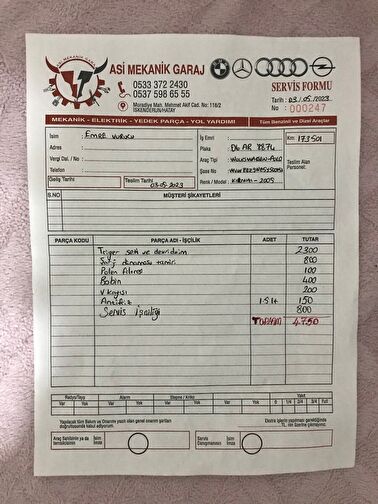 ASİ MEKANİK GARAJ
ASİ MEKANİK GARAJ
0533 372 2430
0537 598 65 55
Muradiye Mah. Mehmet Akif Cad. No: 118/2
İSKENDERUN/HATAY
SERVİS FORMU
Tarih: 03.05.2023
No 000247
MEKANİK - ELEKTRİK - YEDEK PARÇA - YOL YARDIMI
Tüm Benzinli ve Dizel Araçlar
İsim : EMRE
Adres :
Vergi Dai. / No :
Telefon :
İş Emri :
Plaka : 06 AR 8874
Araç Tipi : POLO
Şase No :
Renk / Model : KIRMIZI - 2005
Km: 173501
Teslim Alan
Personel:
Geliş Tarihi
Teslim Tarihi
03-05-2023
S.NO MÜŞTERİ ŞİKAYETLERİ
PARÇA KODU PARÇA ADI - İŞÇİLİK ADET TUTAR
Triger seti ve devirdaim 2300
Şarj dinamosu tamiri 800
Polen filtresi 100
Bobin 400
V Kayışı 200
Antifiriz 1.5 lt 150
Servis İşçiliği 800
TOPLAM 4.750
Radyo/Teyp Alarm Ekspne / Kriko Yakıt
Var Yok Var Yok Var Yok 0 1/4 2/4 3/4 Full
Yapılacak tüm Bakım ve Onarımı yazılı olan genel onarım şartları
doğrultusunda kabul ediyorum.
Ekstra işlerin yapılması gerektiğinde
TL. nin üzerine çıkmayınız.
Araç Sahibinin ya da
temsilcisinin
İsim
İmza
Servis
Danışmanının
İsim
İmza